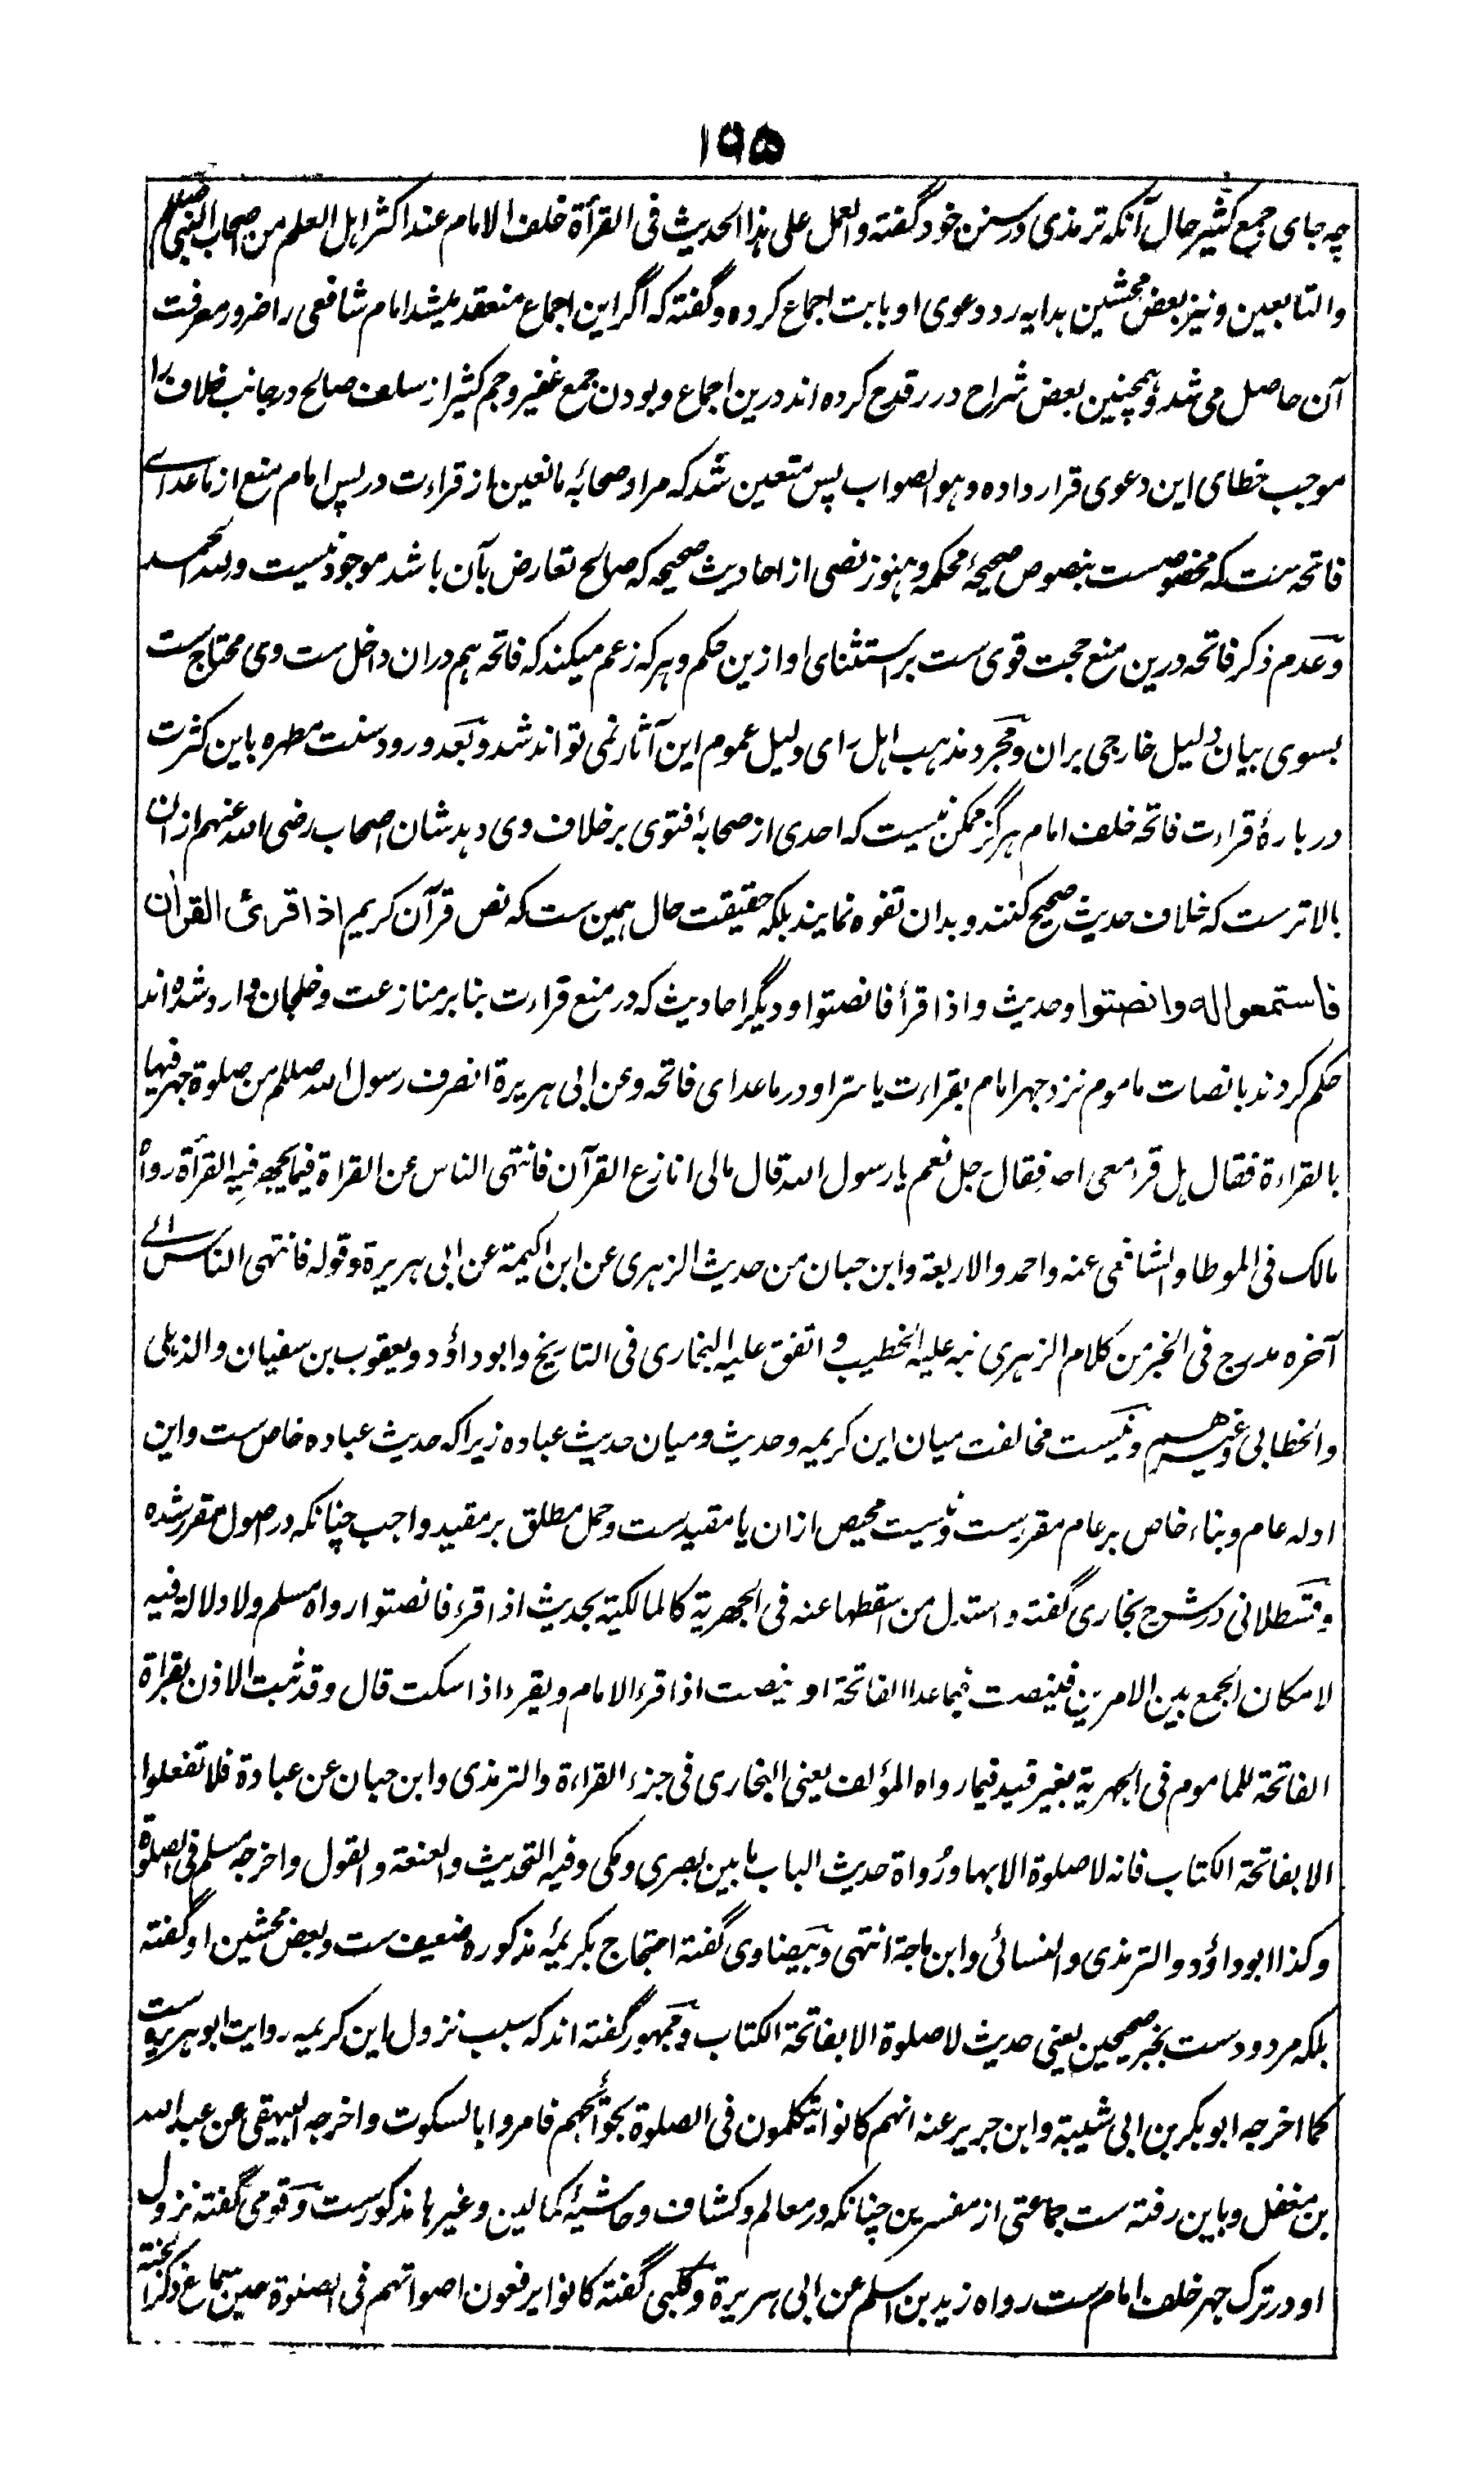 ۱۹۵
چه جای جمع کثیر حال آنکه ترمذی در سنن خود گفته والعمل علی هذا الحدیث فی القرأة خلف الامام عند اکثر اہل العلم من اصحاب النبی صلعم
والتابعین و نیز بعض محشین بدایه رد دعوی او بابت اجماع کرده و گفته که اگر این اجماع منعقد میشد امام شافعی را ضرور معرفت
آن حاصل می شد و همچنین بعض شراح در رقدح کرده اند درین اجماع و بودن جمع غفیر و جم کثیر از سلف صالح در جانب خلاف را
موجب خطای این دعوی قرار داده و هو الصواب پس متعین شد که مراد صحابهٔ مانعین از قراءت در پس امام منع از ماعدای
فاتحه ست که مخصوص ست بنصوص صحیحهٔ محکمه و هنوز نصی از احادیث صحیحه که صالح تعارض بآن باشد موجود نیست ولله الحمد
و عدم ذکر فاتحه درین منع حجت قوی ست بر استثنای او ازین حکم و هر که زعم میکند که فاتحه هم دران داخل ست وی محتاج ست
بسوی بیان دلیل خارجی بران و مجرد مذهب اہل رای دلیل عموم این آثار نمی تواند شد و بعد ورود سنت مطهره باین کثرت
دربارهٔ قراءت فاتحه خلف امام هرگز ممکن نیست که احدی از صحابهٔ فتوی بر خلاف وی دهد شان اصحاب رضی الله عنهم ازان
بالاتر ست که خلاف حدیث صحیح کنند و بدان تفوه نمایند بلکه حقیقت حال همین ست که نص قرآن کریم اذا قرئ القرآن
فاستمعوا له وانصتوا وحدیث واذا قرأ فانصتوا و دیگر احادیث که در منع قراءت بنا بر منازعت و خلجان وارد شده اند
حکم کردند بانصات ماموم نزد جهر امام بقراءت یا سرا و در ماعدای فاتحه وعن ابی هریرة انصرف رسول الله صللم من صلوة جهر فیها
بالقراءة فقال هل قرأ معی احد فقال رجل نعم یا رسول الله قال مالی انازع القرآن فانتهی الناس عن القراة فیما یجهر فیه القرأة رواه
مالک فی الموطا والشافعی عنه واحمد والاربعة وابن حبان من حدیث الزهری عن ابن اکیمة عن ابی هریرة وقوله فانتهی الناس الی
آخره مدرج فی الخبر من کلام الزهری نبه علیه الخطیب و اتفق علیه البخاری فی التاریخ وابوداؤد ویعقوب بن سفیان والذهلی
والخطابی وغیرهم و نیست مخالفت میان این کریمه و حدیث و میان حدیث عباده زیرا که حدیث عباده خاص ست و این
ادله عام و بناء خاص بر عام مقرر ست و نیست محیص ازان یا مقید ست و حمل مطلق بر مقید واجب چنانکه در اصول مقرر شده
و قسطلانی در شرح بخاری گفته و استدل من اسقطها عنه فی الجهریة کالمالکیة بحدیث اذا قرء فانصتوا رواه مسلم ولا دلالة فیه
لامکان الجمع بین الامرین فینصت فیما عدا الفاتحة او ینصت اذا قرء الامام ویقرء اذا سکت قال وقد ثبت الاذن بقراة
الفاتحة للماموم فی الجهریة بغیر قید فیما رواه المؤلف یعنی البخاری فی جزء القراءة والترمذی وابن حبان عن عبادة فلا تفعلوا
الا بفاتحة الکتاب فانه لا صلوة الا بها ورواة حدیث الباب ما بین بصری ومکی وفیه التحدیث والعنعنة والقول واخرجه مسلم فی الصلوة
وکذا ابوداؤد والترمذی والنسائی وابن ماجة انتهی و بیضاوی گفته احتجاج بکریمهٔ مذکوره ضعیف ست و بعض محشین او گفته
بلکه مردود ست بخبر صحیحین یعنی حدیث لا صلوة الا بفاتحة الکتاب و جمهور گفته اند که سبب نزول این کریمه روایت ابوهریره ست
کما اخرجه ابوبکر بن ابی شیبة وابن جریر عنه انهم کانوا یتکلمون فی الصلوة بحوائجهم فامروا بالسکوت واخرجه البیهقی عن عبدالله
بن مغفل و باین رفته ست جماعتی از مفسرین چنانکه در معالم و کشاف و حاشیهٔ کمالین و غیرها مذکور ست و قومی گفته نزول
او در ترک جهر خلف امام ست رواه زید بن اسلم عن ابی هریرة و کلبی گفته کانوا یرفعون اصواتهم فی الصلوة حین سماع ذکر الجنة